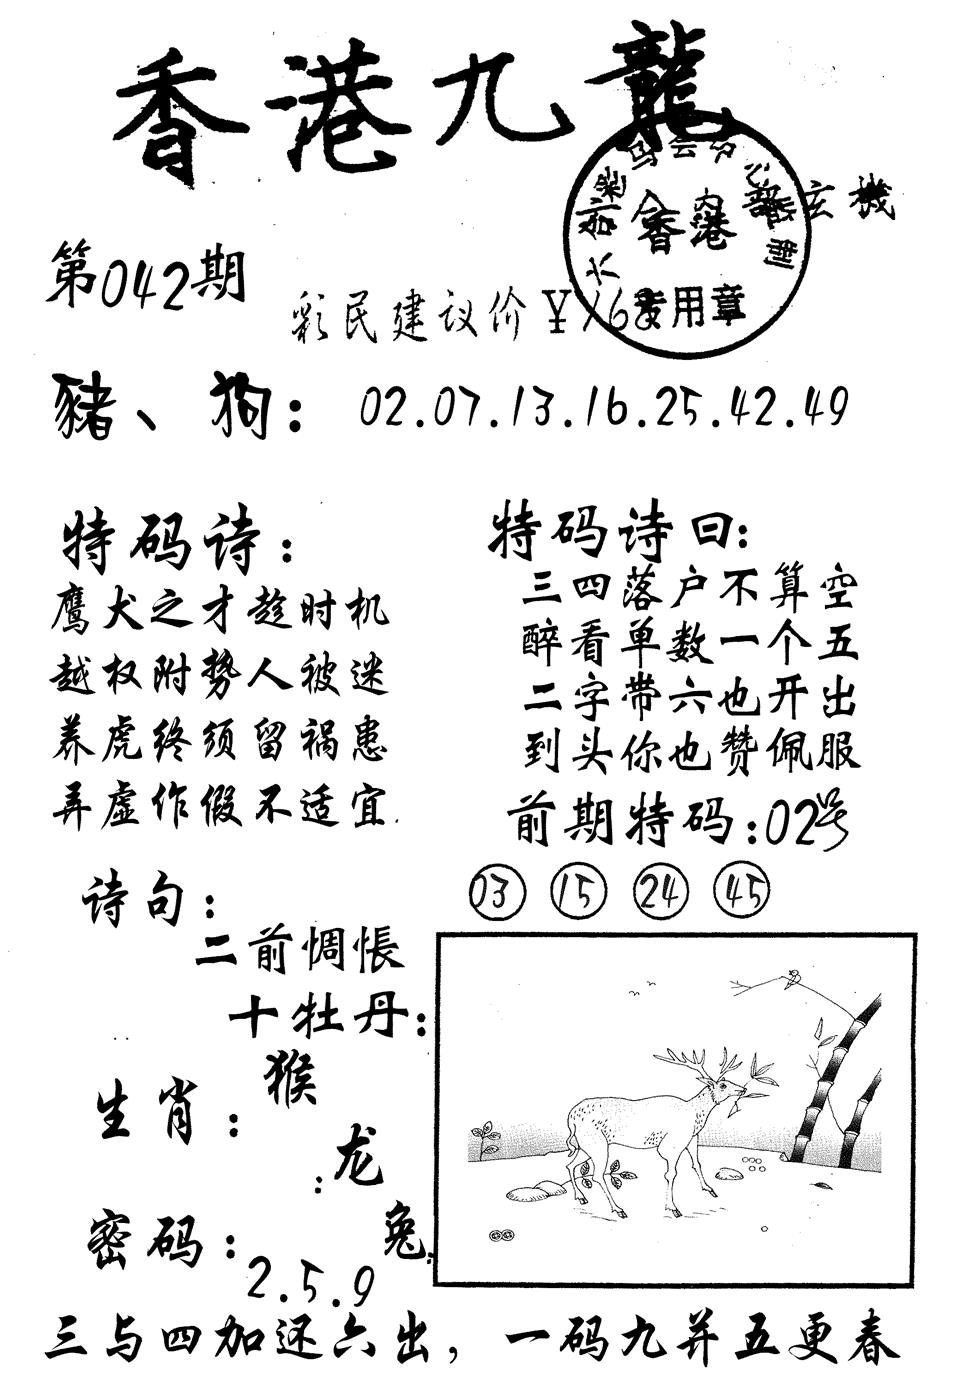 香港九龍
玄機
香港
专用章
第042期
彩民建议价￥168
豬、狗：02.07.13.16.25.42.49
特码诗：
鹰犬之才趁时机
越权附势人被迷
养虎终须留祸患
弄虚作假不适宜
特码诗曰：
三四落户不算空
醉看单数一个五
二字带六也开出
到头你也赞佩服
前期特码：02号
03 15 24 45
诗句：
二前惆悵
十牡丹：
生肖：猴
龙
兔
密码：2.5.9
三与四加还六出，一码九并五更春